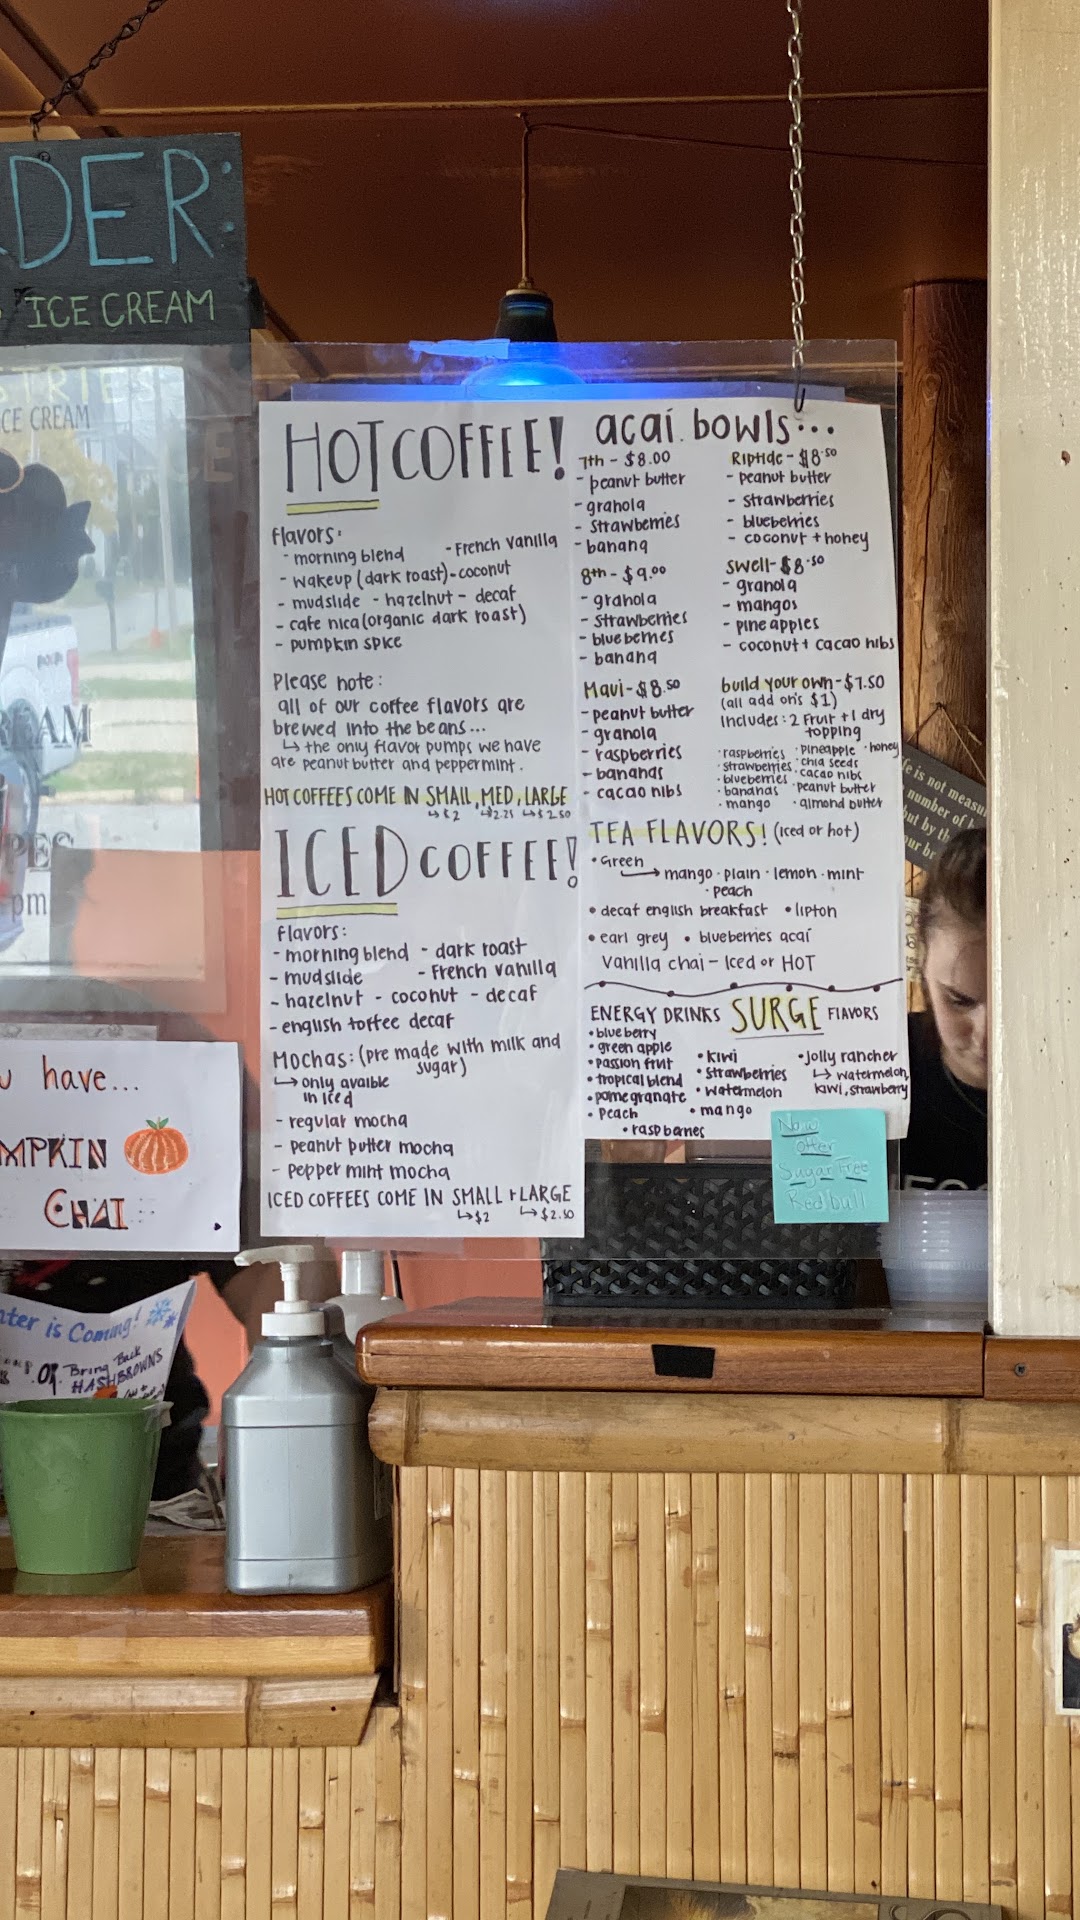 DER:
ICE CREAM
TRIES
CE CREAM
REAM
PES
pm
HOT COFFEE!
flavors:
- morning blend - French vanilla
- wakeup (dark roast) - coconut
- mudslide - hazelnut - decaf
- cafe nica (organic dark roast)
- pumpkin spice
Please note:
all of our coffee flavors are
brewed into the beans...
↳ the only flavor pumps we have
are peanut butter and peppermint.
HOT COFFEES COME IN SMALL, MED, LARGE
↳$2 ↳$2.25 ↳$2.50
ICED COFFEE!
flavors:
- morning blend - dark roast
- mudslide - French vanilla
- hazelnut - coconut - decaf
- english toffee decaf
Mochas: (pre made with milk and
sugar)
↳ only avaible
in iced
- regular mocha
- peanut butter mocha
- peppermint mocha
ICED COFFEES COME IN SMALL + LARGE
↳$2 ↳$2.50
acaí bowls...
7th - $8.00
- peanut butter
- granola
- strawberries
- banana
8th - $9.00
- granola
- strawberries
- blueberries
- banana
Maui - $8.50
- peanut butter
- granola
- raspberries
- bananas
- cacao nibs
Riptide - $8.50
- peanut butter
- strawberries
- blueberries
- coconut + honey
swell - $8.50
- granola
- mangos
- pineapples
- coconut + cacao nibs
build your own - $7.50
(all add on's $1)
Includes: 2 Fruit + 1 dry
topping
· raspberries · pineapple · honey
· strawberries · chia seeds
· blueberries · cacao nibs
· bananas · peanut butter
· mango · almond butter
TEA FLAVORS! (iced or hot)
• Green
→ mango · plain · lemon · mint
· peach
• decaf english breakfast • lipton
• earl grey • blueberries acaí
vanilla chai - Iced or HOT
ENERGY DRINKS SURGE FLAVORS
• blueberry
• green apple
• passion fruit
• tropical blend
• pomegranate
• peach
• raspberries
• kiwi
• strawberries
• watermelon
• mango
• jolly rancher
↳ watermelon,
kiwi, strawberry
Now
offer
Sugar Free
Red bull
fe is not measu
number of
but by th
our br
u have...
MPKIN
CHAI
ter is Coming!
OR Bring Back
HASHBROWNS